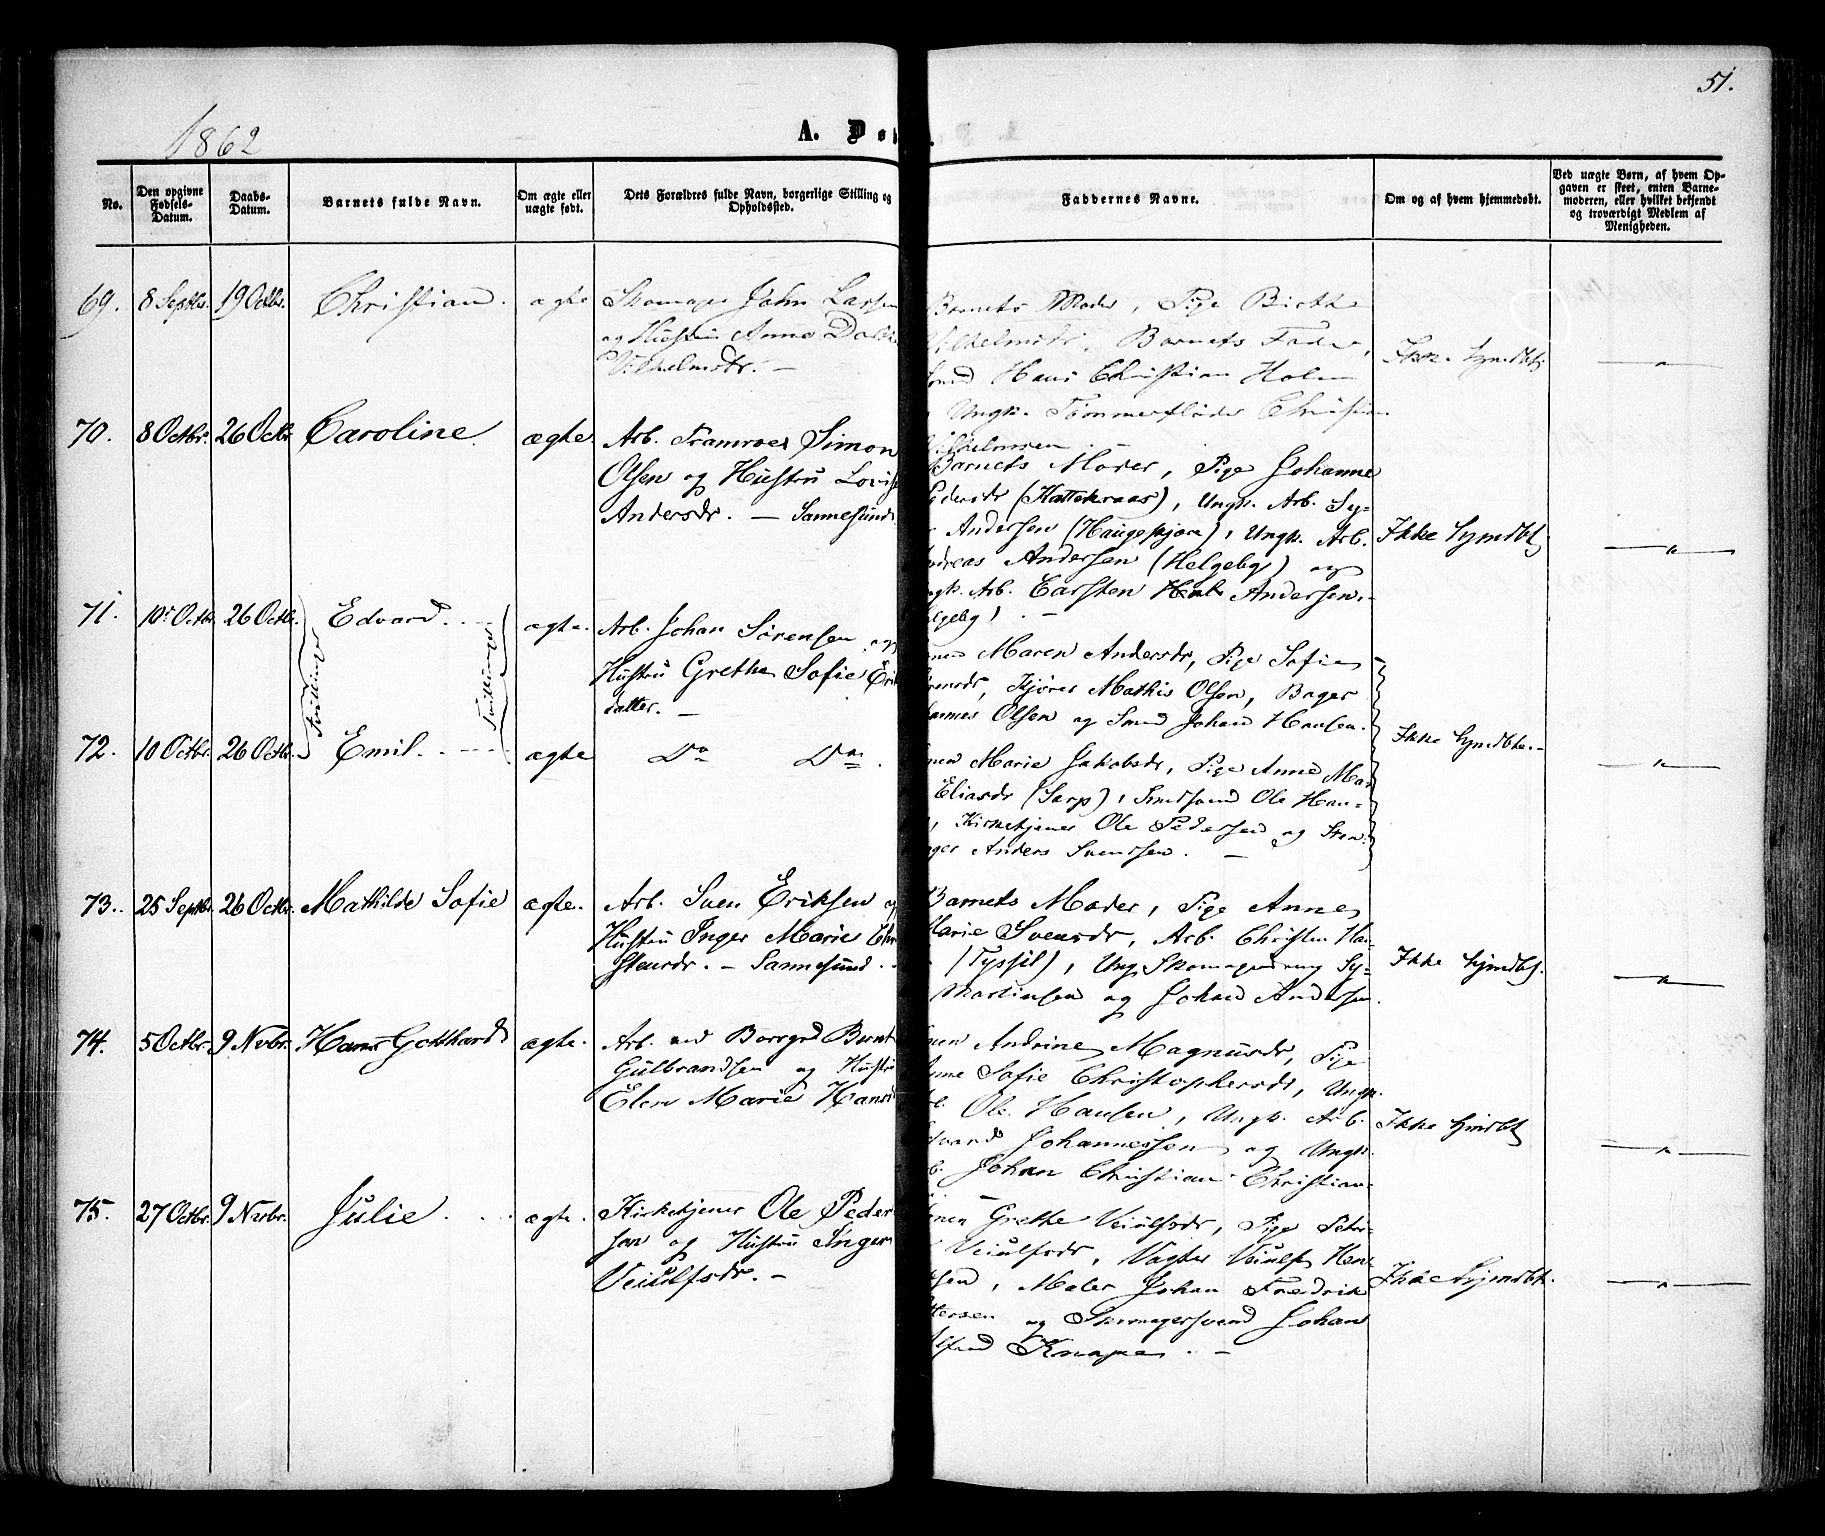 51.
1862
A. Dø
No.
Den opgivne Fødsels-Datum.
Daabs-Datum.
Barnets fulde Navn.
Om ægte eller uægte født.
Dets Forældres fulde Navn, borgerlige Stilling og Opholdssted.
Faddernes Navne.
Om og af hvem hjemmedøbt.
Ved uægte Børn, af hvem Opgaven er skeet, enten Barnemoderen, eller hvilket bekjendt og troværdigt Medlem af Menigheden.
69. 8 Septbr. 19 Octbr. Christian. ægte
John Larsen
og Hustru Anne
Vilhelmsdr. —
Barnets Moder, Pige
Vilhelmsdr, Barnets Fader,
Hans Christian Holm
Ungk. Tømmerfløder
Vilhelmsen. —
Ikke hjmdbt.
70. 8 Octbr. 26 Octbr Caroline. ægte.
Arb. Simon
Olsen og Hustru
Andersdr. — Sannesund
Barnets Moder, Pige Johanne
Pedersdr (Kattekraas), Ungk. Arb. Sy-
Andersen (Haugeskjære), Ungk. Arb.
Andersen (Helgeby) og
Arb. Carsten Andersen
Ikke hjmdbt
71. 10 Octbr. 26 Octbr. Edvard. ægte.
Tvillinger
Tvillinger
Arb. Johan Sørensen og
Hustru Grethe Sofie Erik
datter. —
Maren Andersdr, Pige Sofie
Mathis Olsen, Bager
Olsen og Smed Johan Hansen.
72. 10 Octbr. 26 Octbr. Emil. ægte
Do Do.
Marie Jakobsdr, Pige Anne Mar
Eliasdr (Sarp), Smedsvend Ole Han-
Kirketjener Ole Pedersen og Sten-
Anders Svendsen. —
Ikke hjmdbte. —
73. 25 Septbr. 26 Octbr. Mathilde Sofie ægte.
Arb. Sven Eriksen og
Hustru Inger Marie Chri
stensdr. — Sannesund. —
Barnets Moder, Pige Anne
Marie Svensdr, Arb. Christen Han-
(Tyssil), Ung. Sy-
Martinsen og Johan Andersen.
Ikke hjmdbt.
74. 5 Octbr. 9 Nvbr. Hans Gotthard ægte.
Arb. ved Borrgrd Bernt
Gulbrandsen og Hustru
Elen Marie Hansd
Andrine Magnusdr, Pige
Anne Sofie Christophersdr, Ungk.
Ole Hansen, Ungk. Arb.
Edvard Johannessen og Ungk.
Johan Christian Christian-
Ikke hjmdbt
75. 27 Octbr. 9 Nvbr. Julie. ægte.
Kirketjener Ole Peder
sen og Hustru Inger
Veiulfsdr. —
Grethe Veiulfsdr, Pige
Veiulfsdr, Vagter Veiulf Hen
Maler Johan Fredrik
og Skomagersvend Johan
Alfred Knape. —
Ikke hjmdbt.